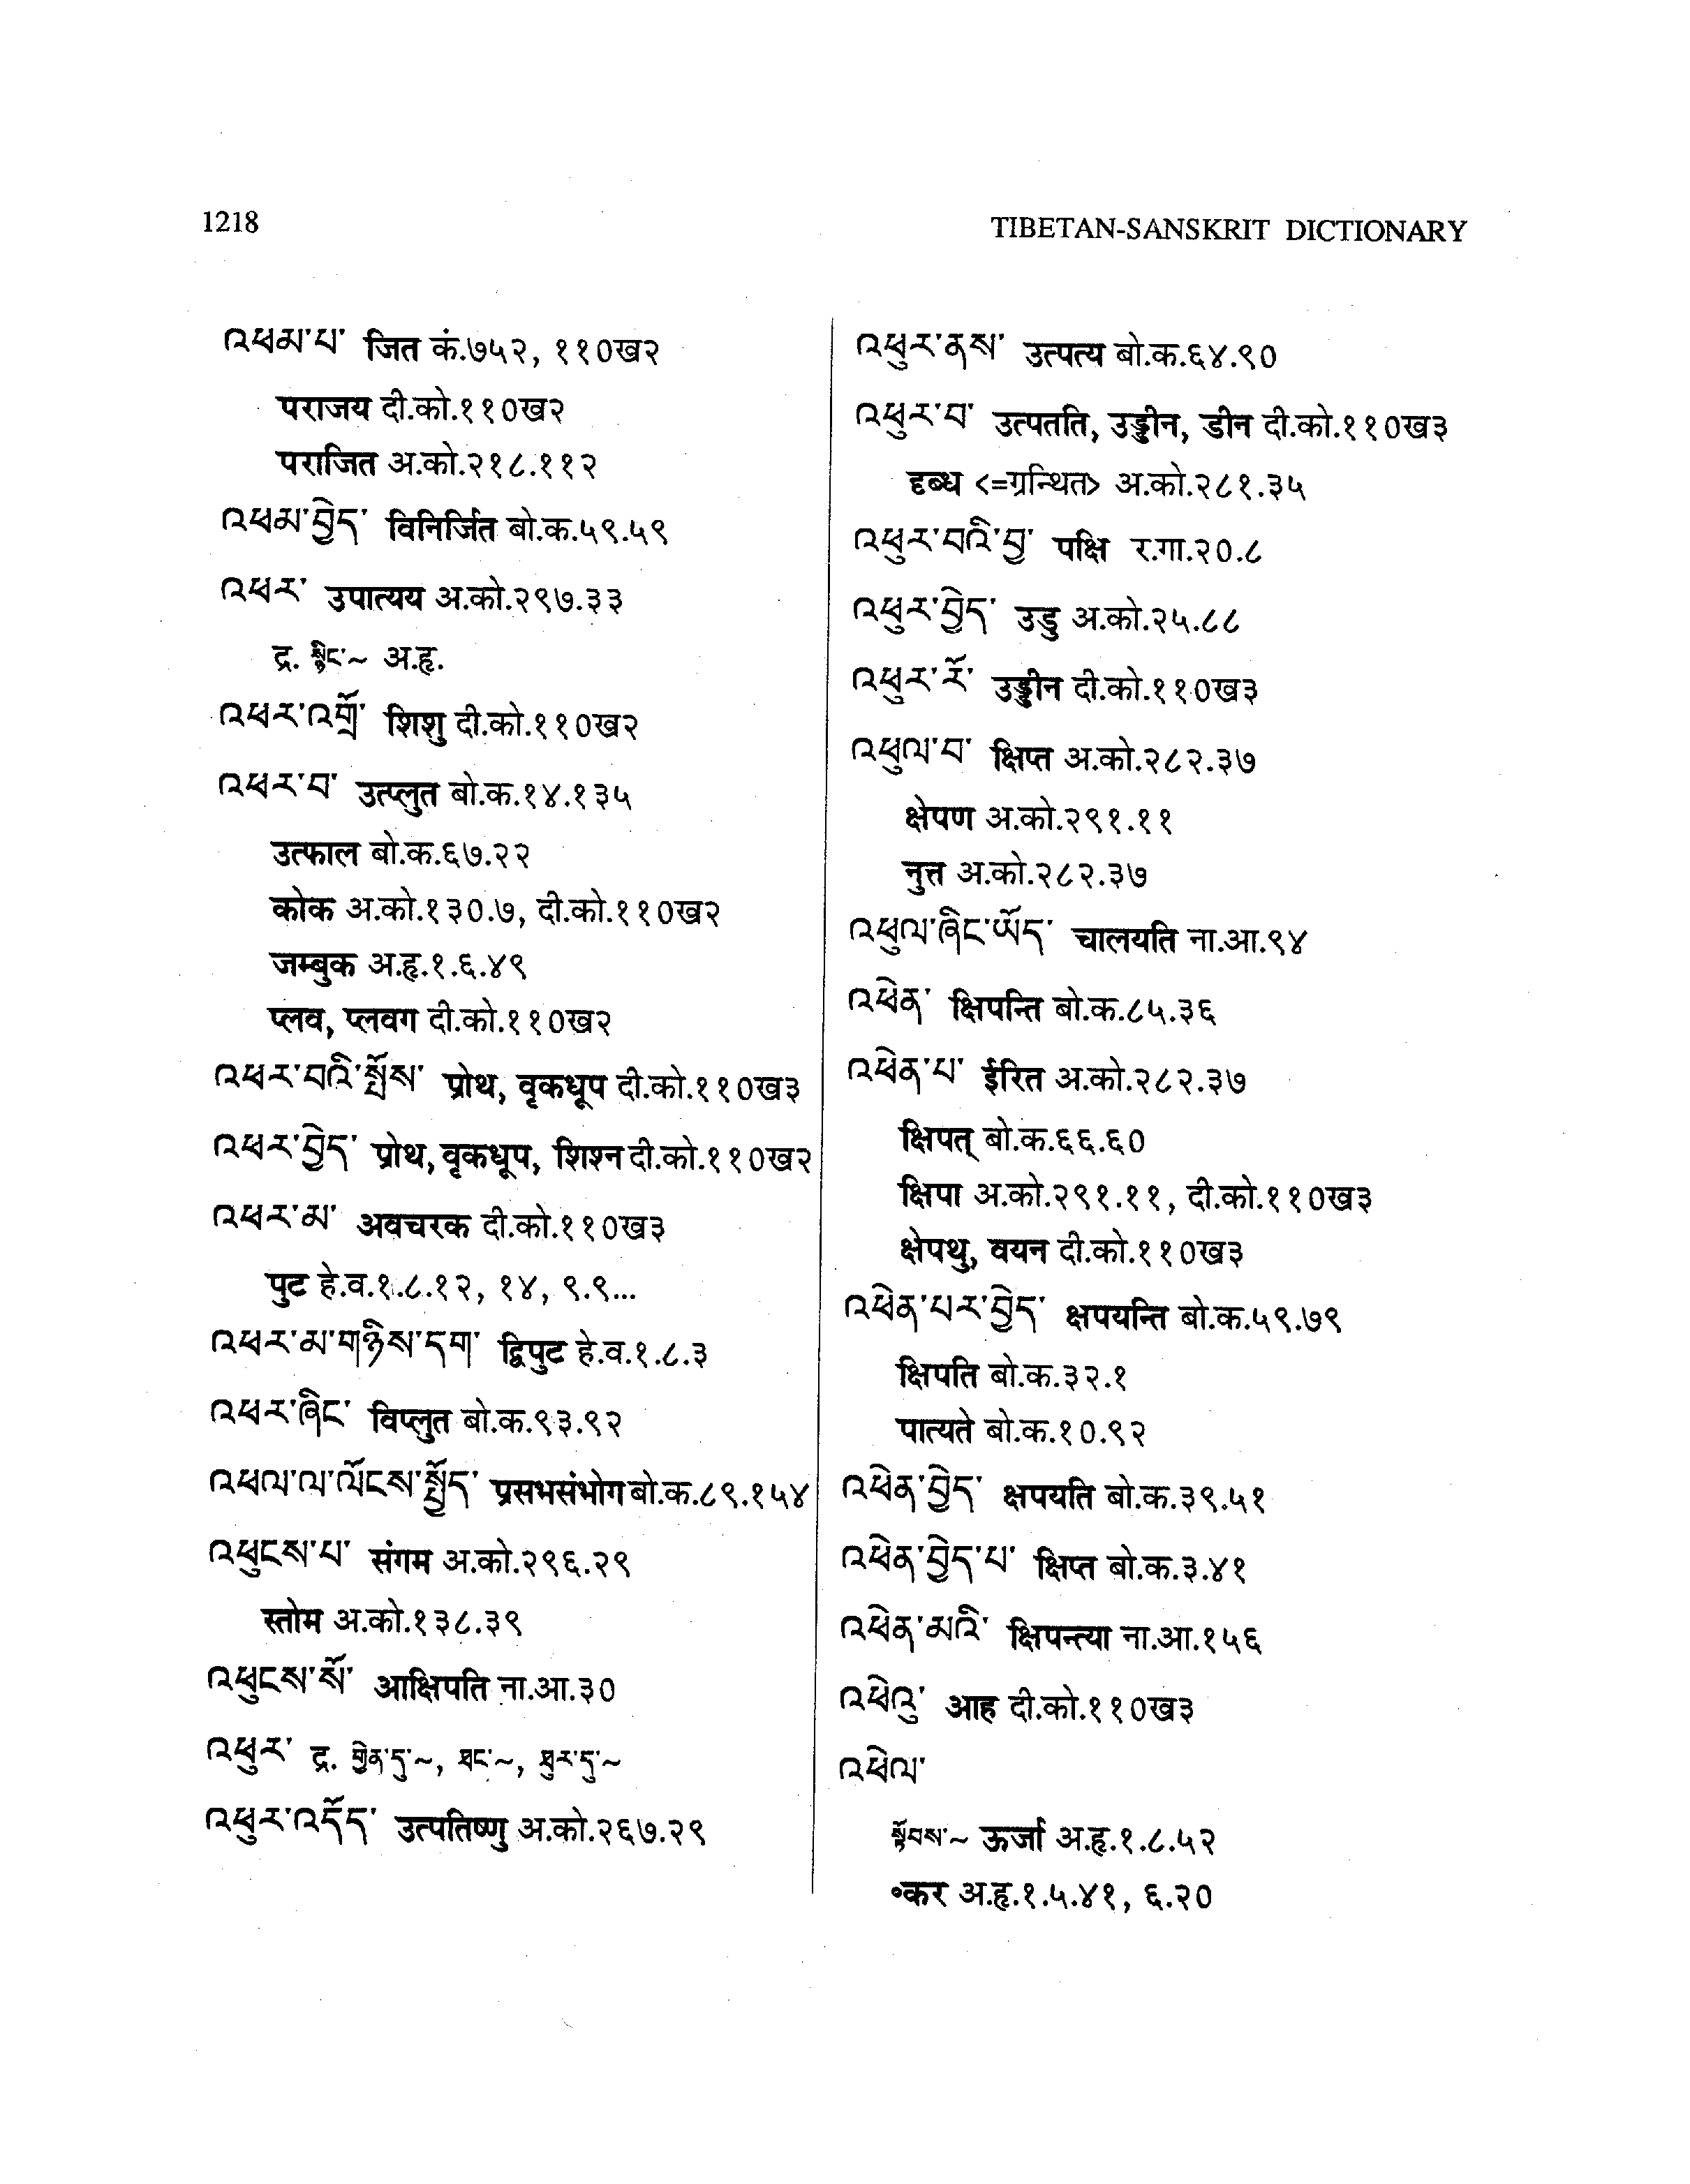 1218
TIBETAN-SANSKRIT DICTIONARY
འཕམ་པ་ जित कं.७५२, ११०ख२
पराजय दी.को.११०ख२
पराजित अ.को.२१८.११२
འཕམ་བྱེད་ विनिर्जित बो.क.५९.५९
འཕར་ उपात्यय अ.को.२९७.३३
द्र. སྙིང་~ अ.हृ.
འཕར་འགྲོ་ शिशु दी.को.११०ख२
འཕར་བ་ उत्प्लुत बो.क.१४.१३५
उत्फाल बो.क.६७.२२
कोक अ.को.१३०.७, दी.को.११०ख२
जम्बुक अ.हृ.१.६.४९
प्लव, प्लवग दी.को.११०ख२
འཕར་བའི་སྤོས་ प्रोथ, वृकधूप दी.को.११०ख३
འཕར་བྱེད་ प्रोथ, वृकधूप, शिश्न दी.को.११०ख२
འཕར་མ་ अवचरक दी.को.११०ख३
पुट हे.व.१.८.१२, १४, ९.९...
འཕར་མ་གཉིས་དག་ द्विपुट हे.व.१.८.३
འཕར་ཞིང་ विप्लुत बो.क.९३.९२
འཕལ་ལ་ལོངས་སྤྱོད་ प्रसभसंभोग बो.क.८९.१५४
འཕུངས་པ་ संगम अ.को.२९६.२९
स्तोम अ.को.१३८.३९
འཕུངས་སོ་ आक्षिपति ना.आ.३०
འཕུར་ द्र. གྱེན་དུ་~, ཐང་~, ཐུར་དུ་~
འཕུར་འདོད་ उत्पतिष्णु अ.को.२६७.२९
འཕུར་ནས་ उत्पत्य बो.क.६४.९०
འཕུར་བ་ उत्पतति, उड्डीन, डीन दी.को.११०ख३
दृब्ध <=ग्रन्थित> अ.को.२८१.३५
འཕུར་བའི་བྱ་ पक्षि र.गा.२०.८
འཕུར་བྱེད་ उडु अ.को.२५.८८
འཕུར་རོ་ उड्डीन दी.को.११०ख३
འཕུལ་བ་ क्षिप्त अ.को.२८२.३७
क्षेपण अ.को.२९१.११
नुत्त अ.को.२८२.३७
འཕུལ་ཞིང་ཡོད་ चालयति ना.आ.९४
འཕེན་ क्षिपन्ति बो.क.८५.३६
འཕེན་པ་ ईरित अ.को.२८२.३७
क्षिपत् बो.क.६६.६०
क्षिपा अ.को.२९१.११, दी.को.११०ख३
क्षेपथु, वयन दी.को.११०ख३
འཕེན་པར་བྱེད་ क्षपयन्ति बो.क.५९.७९
क्षिपति बो.क.३२.१
पात्यते बो.क.१०.९२
འཕེན་བྱེད་ क्षपयति बो.क.३९.५१
འཕེན་བྱེད་པ་ क्षिप्त बो.क.३.४१
འཕེན་མའི་ क्षिपन्त्या ना.आ.१५६
འཕེའུ་ आह दी.को.११०ख३
འཕེལ་
སྟོབས་~ ऊर्जा अ.हृ.१.८.५२
°कर अ.हृ.१.५.४१, ६.२०